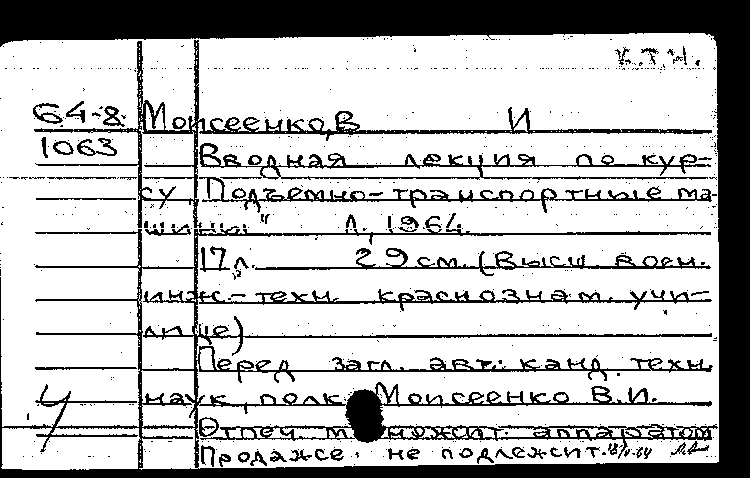 К.Т.Н.
64-8 Моисеенко, В И
1063 Вводная лекция по кур-
су "Подъемно-транспортные ма-
шины" Л., 1964.
17 л. 29 см. (Высш воен.
инж.-техн. краснознам. учи-
лище)
Перед загл. авт.: канд. техн.
наук, полк. Моисеенко В.И.
Отпеч. множит. аппаратом
Продаже не подлежит.